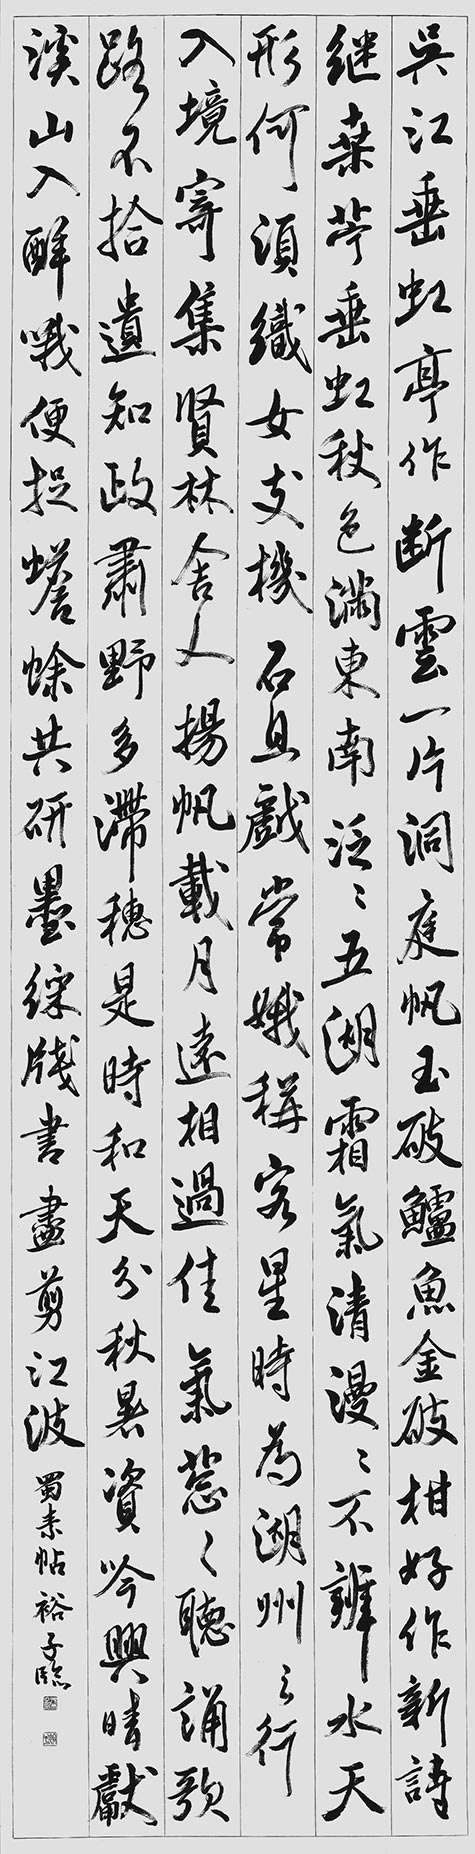 吳江垂虹亭作斷雲一片洞庭帆玉破鱸魚金破柑好作新詩
継桑苧垂虹秋色滿東南泛々五湖霜氣清漫々不辨水天
形何須織女支機石且戲常娥稱客星時為湖州之行
入境寄集賢林舍人揚帆載月遠相過佳氣葱々聽誦歌
路不拾遺知政肅野多滯穗是時和天分秋暑資吟興晴獻
溪山入醉哦便捉蟾蜍共研墨綵牋書盡剪江波蜀素帖裕子臨